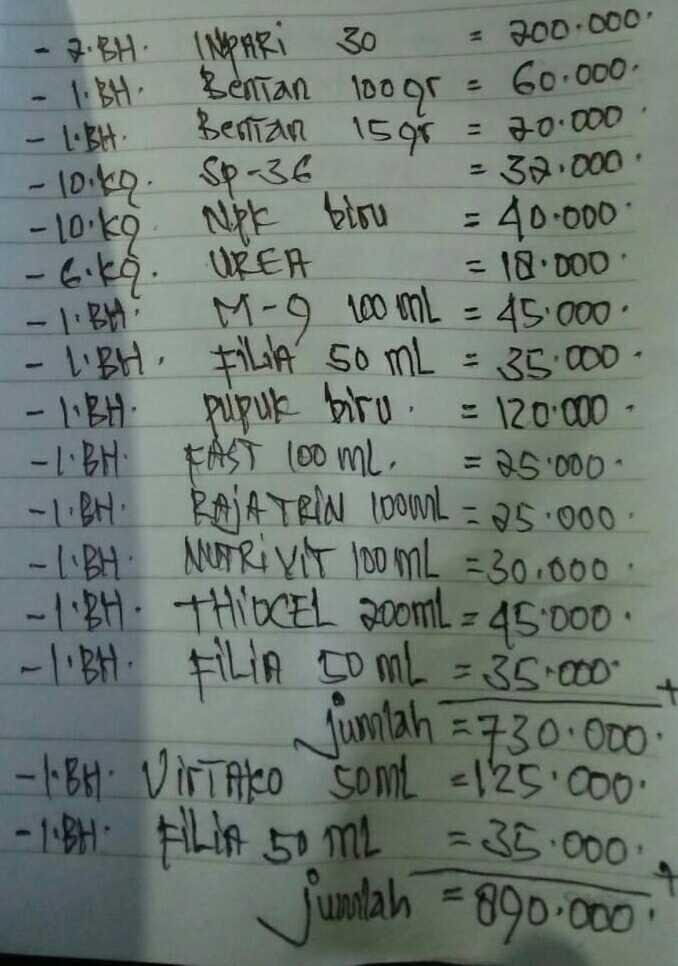 - 2.BH. INPARI 30 = 200.000.
- 1.BH. Bentan 100 gr = 60.000.
- 1.BH. Bentan 15 gr = 20.000
- 10.kg. SP-36 = 32.000.
- 10.kg. Npk biru = 40.000.
- 6.kg. UREA = 18.000.
- 1.BH. M-9 100 mL = 45.000.
- 1.BH. FiLiA 50 mL = 35.000.
- 1.BH. pupuk biru. = 120.000.
- 1.BH. FAST 100 mL. = 25.000.
- 1.BH. RAjA TRIN 100mL = 25.000.
- 1.BH. NUTRiViT 100 mL = 30.000.
- 1.BH. THiOCEL 200mL = 45.000.
- 1.BH. FiLiA 50 mL = 35.000. +
jumlah = 730.000.
- 1.BH. VirTAKO 50mL = 125.000.
- 1.BH. FiLiA 50 mL = 35.000. +
jumlah = 890.000.